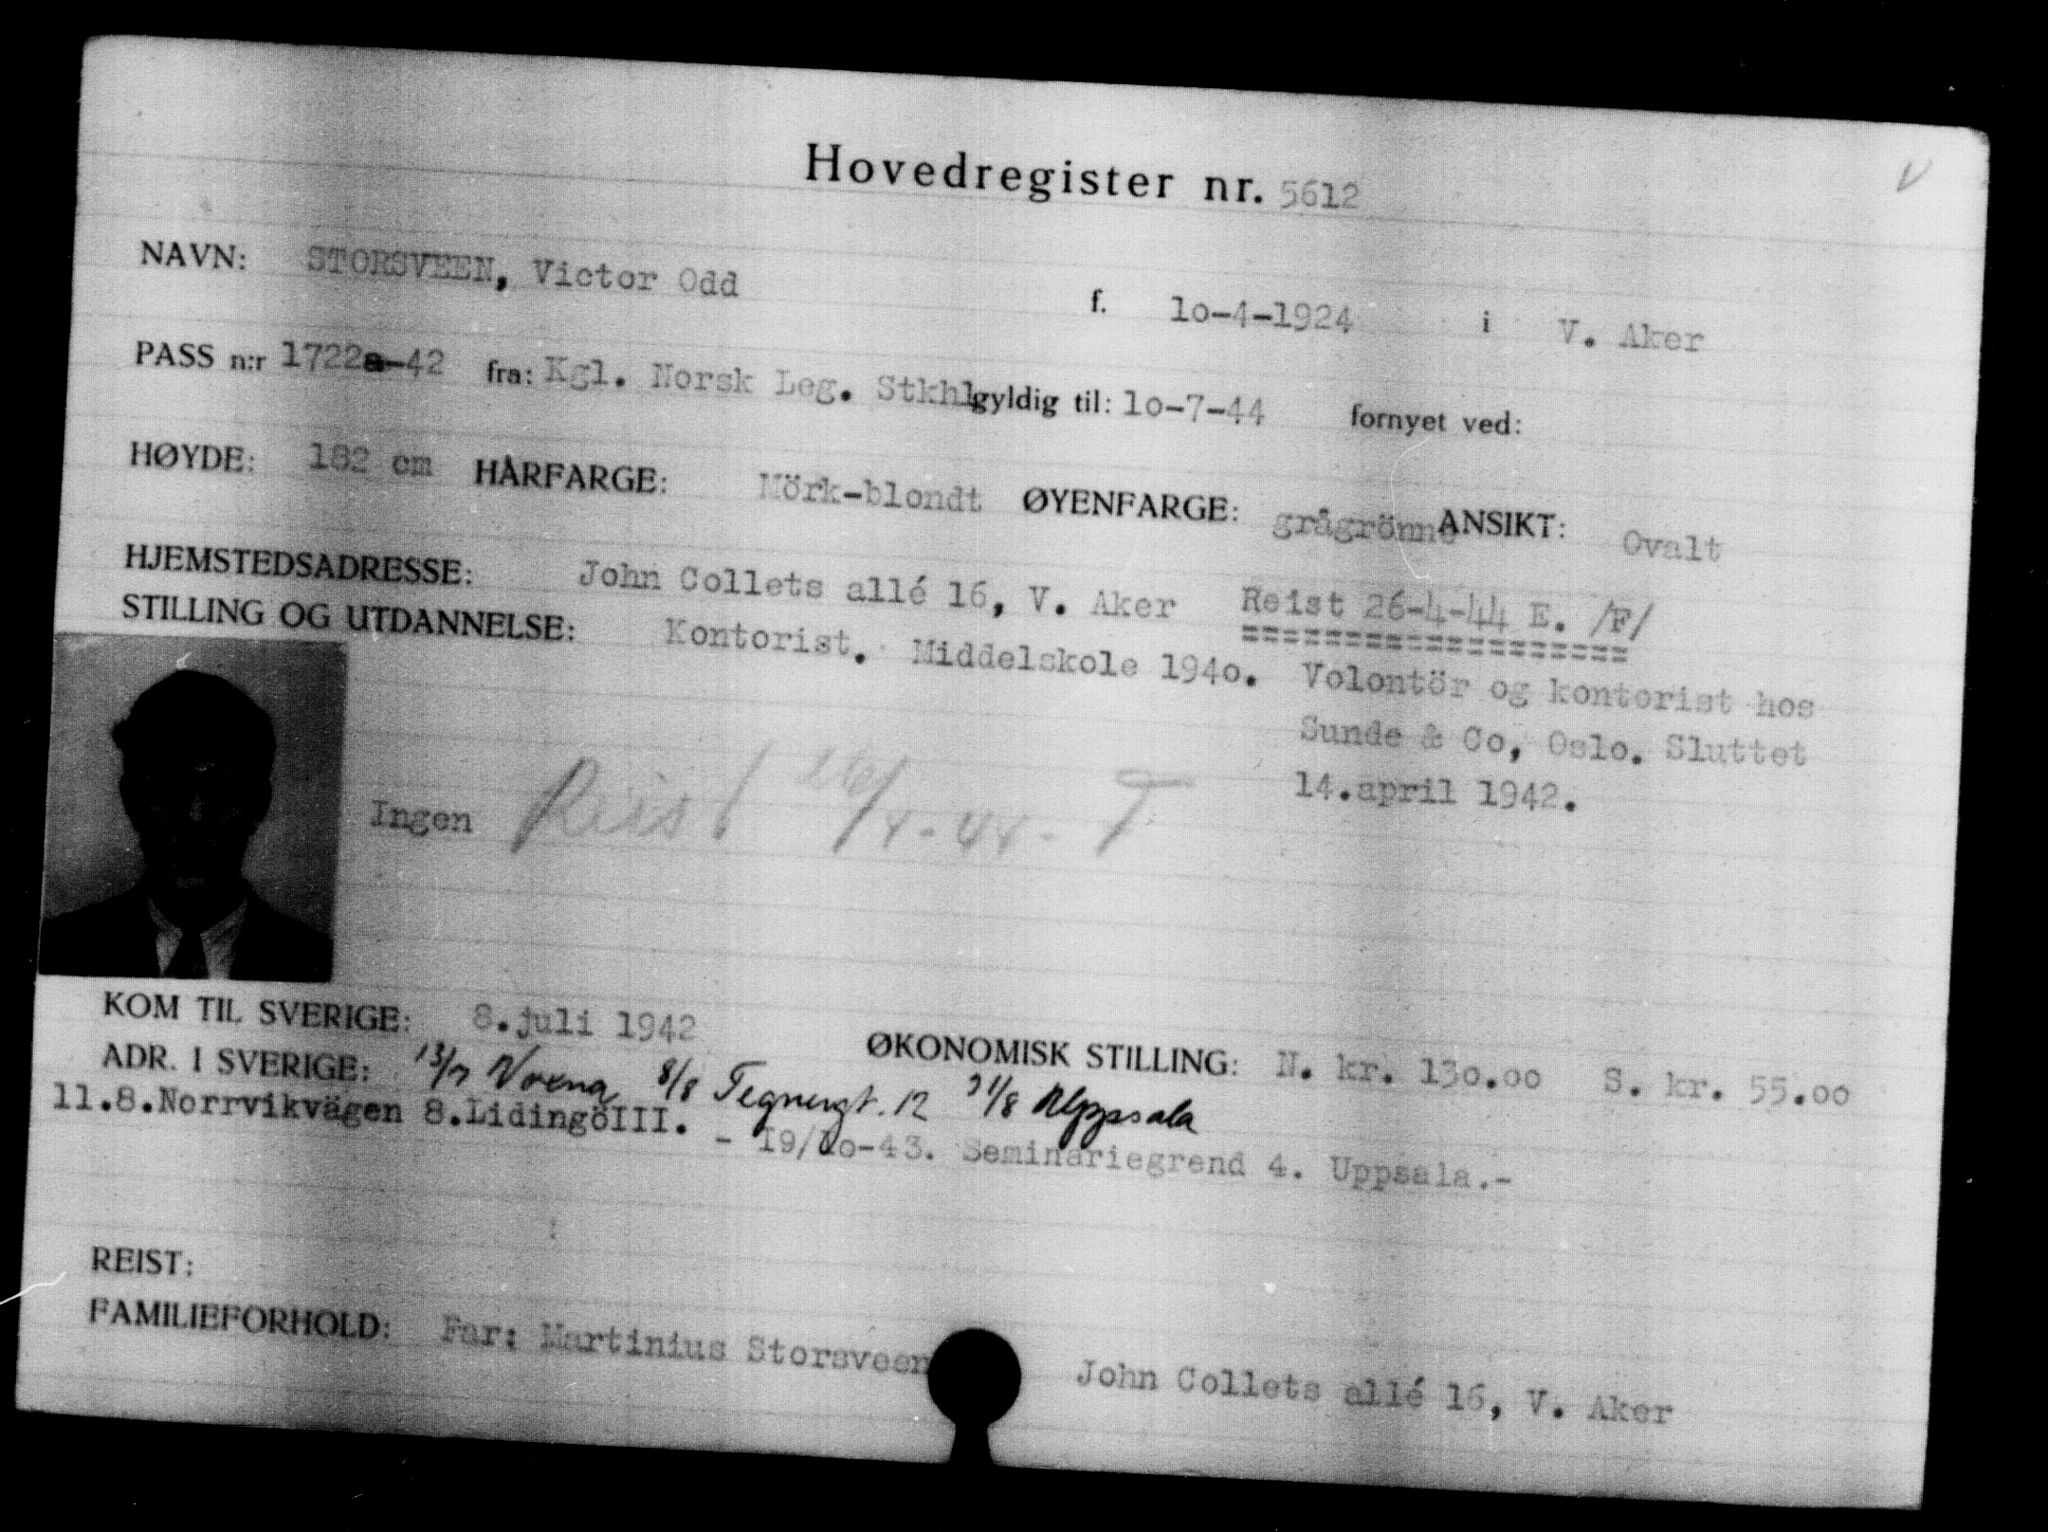 Hovedregister nr. 5612
NAVN: STORSVEEN, Victor Odd f. 1o-4-1924 i V. Aker
PASS n:r 1722a-42 fra: Kgl. Norsk Leg. Stkhl gyldig til: 1o-7-44 fornyet ved:
HØYDE: 182 cm HÅRFARGE: Mörk-blondt ØYENFARGE: grågrönne ANSIKT: Ovalt
HJEMSTEDSADRESSE: John Collets allé 16, V. Aker Reist 26-4-44 E. /F/
STILLING OG UTDANNELSE: Kontorist. Middelskole 194o. Volontör og kontorist hos
Sunde & Co, Oslo. Sluttet
14.april 1942.
Ingen Reist 26/4-44- T
KOM TIL SVERIGE: 8.juli 1942 ØKONOMISK STILLING: N. kr. 13o.oo S. kr. 55.oo
ADR. I SVERIGE: 13/7 8/8 Tegnergt. 12 Uppsala
11.8.Norrvikvägen 8.LidingöIII. - 19/1o-43. Seminariegrend 4. Uppsala.-
REIST:
FAMILIEFORHOLD: Far: Martinius Storsveen John Collets allé 16, V. Aker